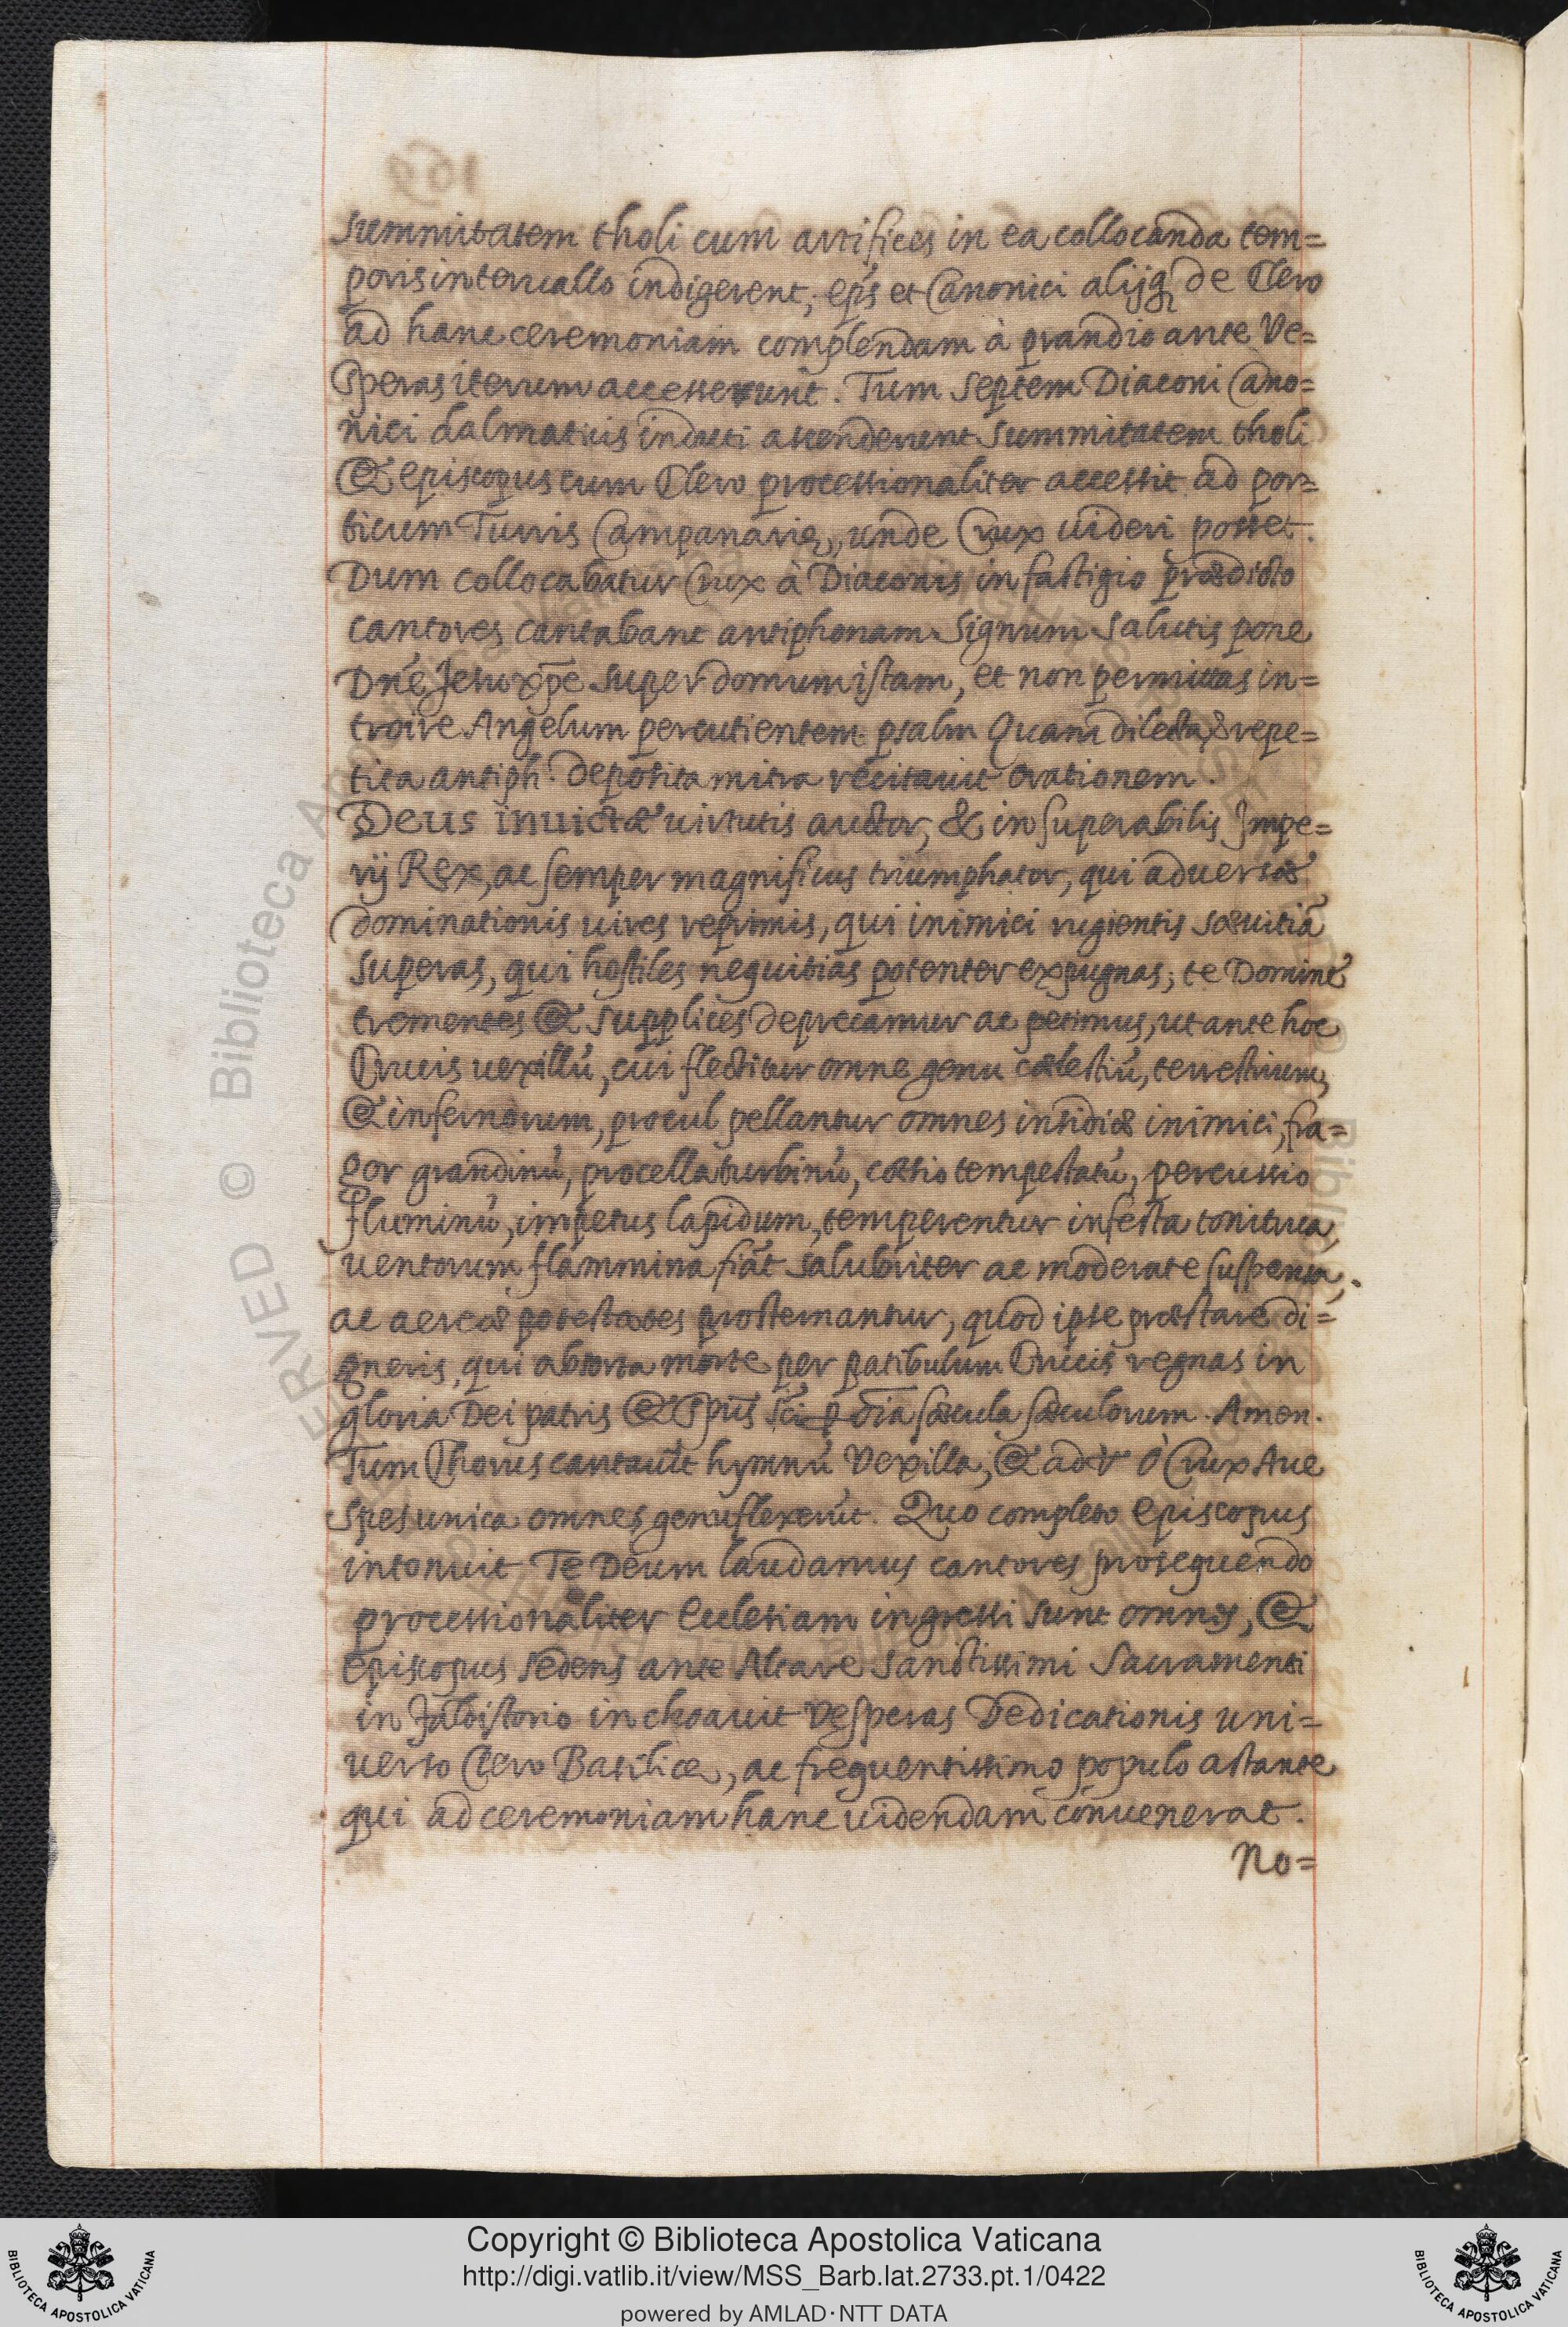 summitatem tholi cum artifices in ea collocanda tem=
poris interuallo indigerent, ep̃s et Canonici alijq̃ de Clero
ad hanc ceremoniam complendam à prandio ante Ve=
speras iterum accesserunt. Tum septem Diaconi Cano=
nici dalmaticis induti ascenderunt summitatem tholi
& episcopus cum Clero processionaliter accessit ad por=
ticum Turris Campanarię, unde Crux uideri posset.
Dum collocabatur Crux à Diaconis in fastigio prædicto
cantores cantabant antiphonam Signum salutis pone
Dñe Jesu xp̃e super domum istam, et non permittas in=
troire Angelum percutientem psalm Quam dilecta & repe=
tita antiph. deposita mitra recitauit orationem.
Deus inuictæ uirtutis auctor, & insuperabilis Impe=
rij Rex, ac semper magnificus triumphator, qui aduersæ
dominationis uires reprimis, qui inimici rugientis sæuitiã
superas, qui hostiles nequitias potenter expugnas; te Domine
trementes & supplices deprecamur ac petimus, ut ante hoc
Crucis uexillũ, cui flectitur omne genu cælestiũ, terrestrium,
& infernorum, procul pellantur omnes insidiæ inimici, fra=
gor grandinũ, procella turbinũ, cæsio tempestatũ, percussio
fluminũ, impetus lapidum, temperentur infesta tonitrua,
uentorum flammina fiãt salubriter ac moderate suspensa,
ac aereæ potestates prosternantur, quod ipse præstare di=
gneris, qui absorta morte per patibulum Crucis regnas in
gloria Dei patris & Sp̃us s̃ci p õia sæcula sæculorum. Amen.
Tum Chorus cantauit hymnũ Vexilla, & ad ℣ ò Crux Aue
spes unica omnes genuflexerũt. Quo completo Episcopus
intonuit Te Deum laudamus cantores prosequendo
processionaliter Ecclesiam ingressi sunt omnes, &
Episcopus sedens ante Altare Sanctissimi Sacramenti
in Faldistorio inchoauit Vesperas Dedicationis uni=
uerso Clero Basilicæ, ac frequentissimo populo astante
qui ad ceremoniam hanc uidendam conuenerat.
No=
Copyright © Biblioteca Apostolica Vaticana
http://digi.vatlib.it/view/MSS_Barb.lat.2733.pt.1/0422
powered by AMLAD·NTT DATA
BIBLIOTECA APOSTOLICA VATICANA
BIBLIOTECA APOSTOLICA VATICANA